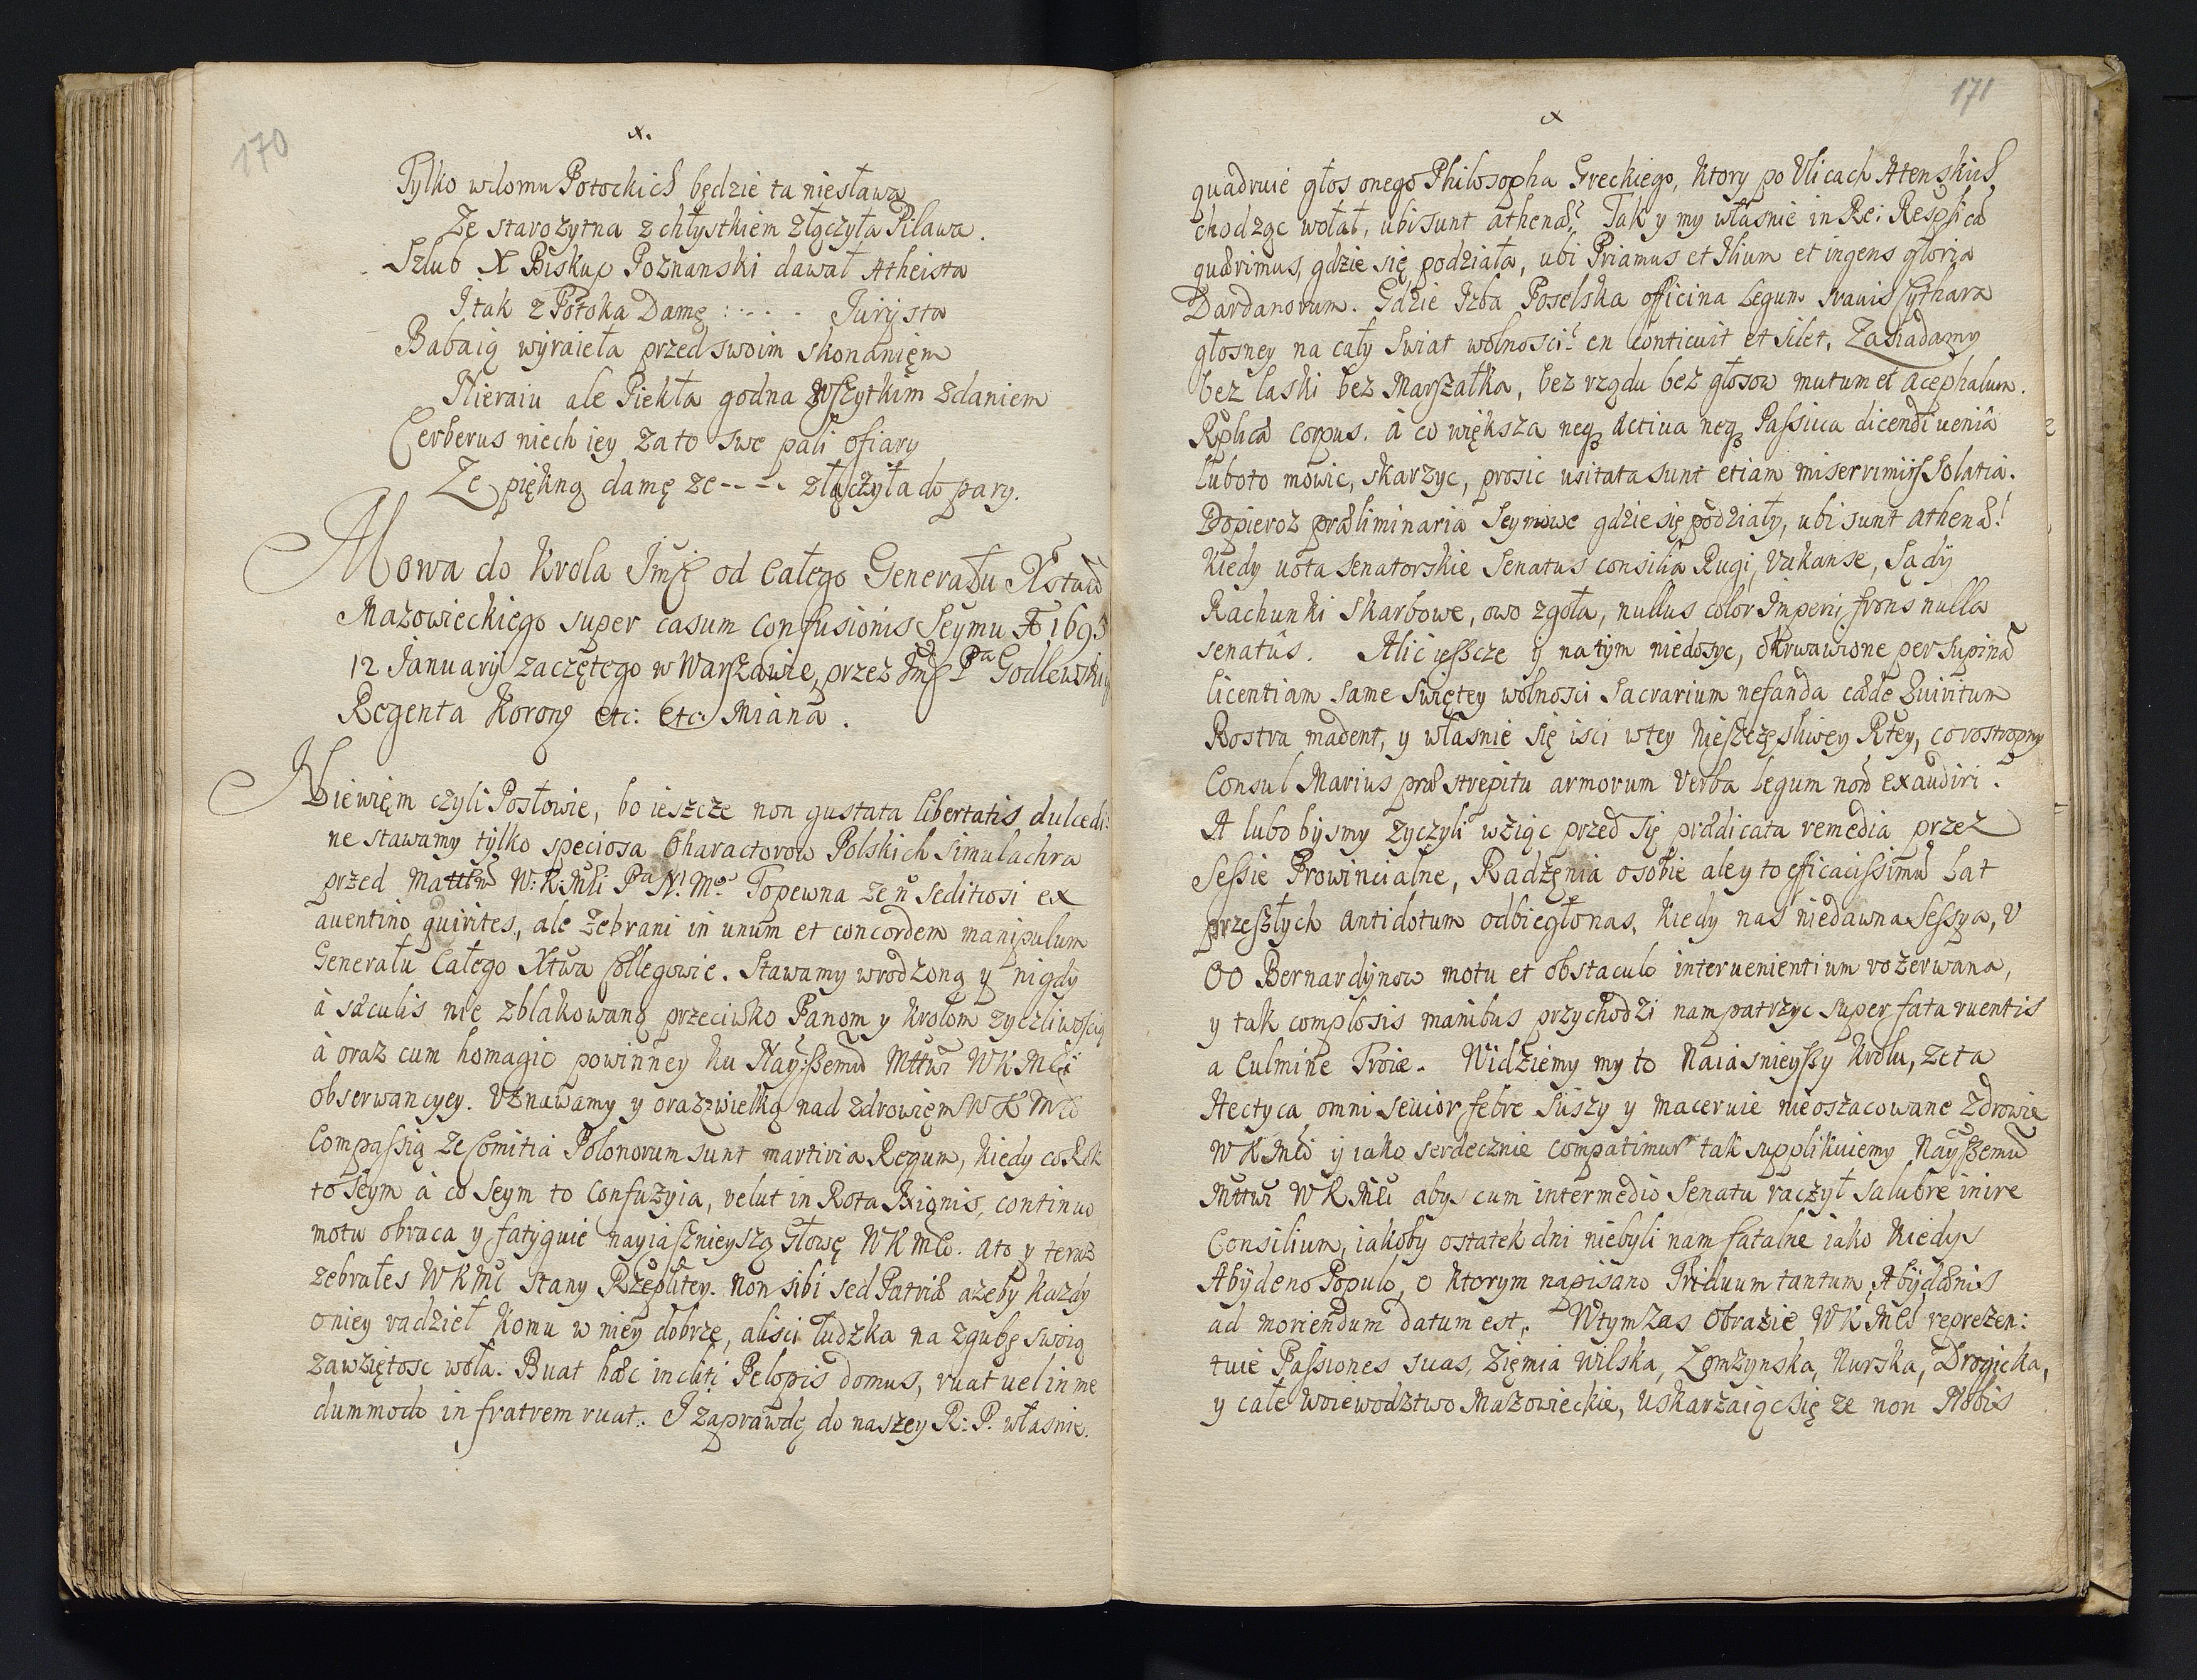 170
x.
Tylko wdomu Potockich będzie ta niesława
Ze starozytna z chłystkiem złączyła Pilawa.
Szlub X Biskup Poznanski dawał Atheista
I tak z Potoka Damę : - - - Jurysta
Babaią wyraieła przed swoim skonanięm
Nieraiu ale Piekła godna wszytkim zdaniem
Cerberus niech iey za to swe pali ofiary
Ze piękną damę ze - - - - złączyła do pary.
Mowa do Krola Jmsc od Całego Generału Xstwa
Mazowieckiego super casum confusionis Seymu Ao 1693
12 January zaczętego w Warszawie, przez Jmsc Pa Godlewskie
Regenta Korong etc: etc: Miana.
Niewięm czyli Posłowie, bo ieszcze non gustata libertatis dulcedi:
ne stawamy tylko speciosa Charactorow Polskich simulachra
przed Mattem W:K:Mśi Pa N: Mo To pewna ze n seditiosi ex
auentino quirites, ale zebrani in unum et concordem manipulum
Generału Całego Xtwa Collegowie. Stawamy wrodzoną y nigdy
à sæculis nie zblakowaną przeciwko Panom y Krolom zyczliwoscią
à oraz cum homagio powinney ku Nayszemu Mttwi WKMśi
obserwancyey. Uznawamy y oraz wielką nad zdrowięm WKMśi
Compassią ze Comitia Polonorum sunt martiria Regum, kiedy co Rok
to Seym à co Seym to Confuzyia, velut in Rota Ixionis, continuo
motu obraca y fatyguie nayiasznieyszą Głowę WKMśi. Ato y teraz
zebrałes WKMść Stany Rzepltey. Non sibi sed Patriæ azeby kazdy
oniey radzieł komu w niey dobrze, alisci ludzka na zgubę swoią
zawziętosc woła. Ruat hæc incliti Pelopis domus, ruat uel in me
dummodo in fratrem ruat. I zaprawdę do naszey R: P. własnie.
171
x
quadruie głos onego Philosopha Greckiego, ktory po Ulicach Atenskich
chodząc wołał, ubi sunt athenæ? Tak y my własnie in Re: Respsica
quærimus, gdzie się podziała, ubi Priamus et Ilium et ingens gloria
Dardanorum. Gdzie Izba Poselska officina Legum suauis Cythara
głosney na cały Swiat wolnosci? en conticuit et silet. Zasiadamy
bez laski bez Marszałka, bez rządu bez głosow mutum et acephalum.
Rplicæ corpus. à co większa neq actiua neq Passiua dicendi uenia
luboto mowic, skarzyc, prosic usitata sunt etiam miserrimiis solatia.
Dopieroz præliminaria Seymowe gdzie się podziały, ubi sunt athenæ!
Kiedy uota senatorskie Senatus consilia Rugi, Vakanse, Sądy
Rachunki Skarbowe, owo zgoła, nullus color Imperii, frons nulla
senatûs. Alic ieszcze y na tym niedosyc, okrwawione per supinam
licentiam same swiętey wolnosci Sacrarium nefanda cæde Quiritum
Rostra madent, y własnie się isci wtey nieszczęsliwey Rtey, co rostropny
Consul Marius præ strepitu armorum verba legum non exaudiri.
A lubo bysmy zyczyli wziąc przed się prædicata remedia przez
Sessie Prowincialne, Radzęnia osobie ale y to efficacissimum Lat
przeszłych antidotum odbiegło nas, kiedy nas niedawna Sessya, U
OO Bernardynow motu et obstaculo interuenientium rozerwana,
y tak complosis manibus przychodzi nam patrzyc super fata ruentis
a Culmine Troiæ. Widziemy my to Naiasnieyszy Krolu, ze ta
Hectyca omni seuior febre suszy y maceruie nieoszacowane zdrowie
WKMśi y iako serdecznie compatimur tak supplikuiemy Nayszemu
Mttwi WKMśi abys cum intermedio Senatu raczył salubre inire
Consilium, iakoby ostatek dni niebyli nam fatalne iako kiedys
Abydeno Populo, o ktorym napisano Triduum tantum Abydænis
ad moriendum datum est. Wtym zas obrazie WKMśi reprezen:
tuie Passiones suas, Zięmia Wilska, Łomzynska, Nurska, Drogicka,
y całe Woiewodztwo Mazowieckie, uskarzaiąc się ze non Nobis